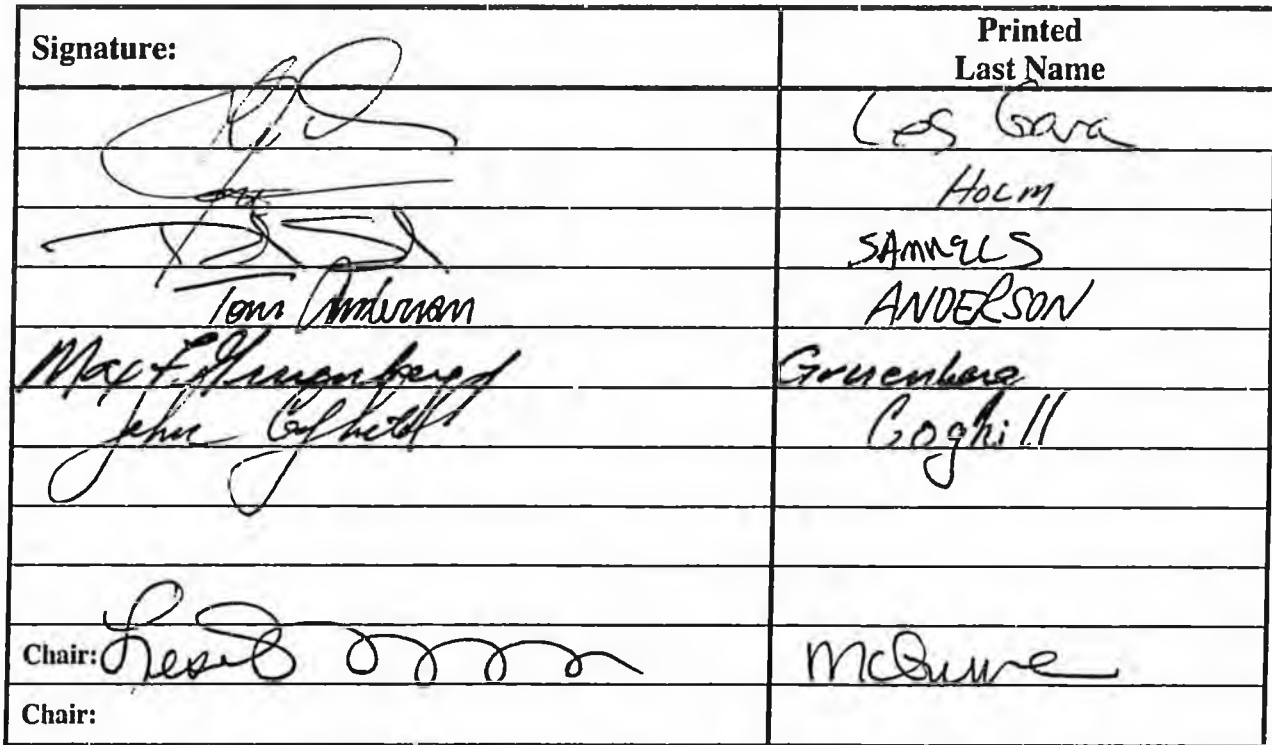 Signature:
Printed
Last Name
Les Gara
Holm
SAMUELS
Tom Anderson
ANDERSON
Max F. Gruenberg
Gruenberg
John Coghill
Coghill
Chair:
McGuire
Chair: